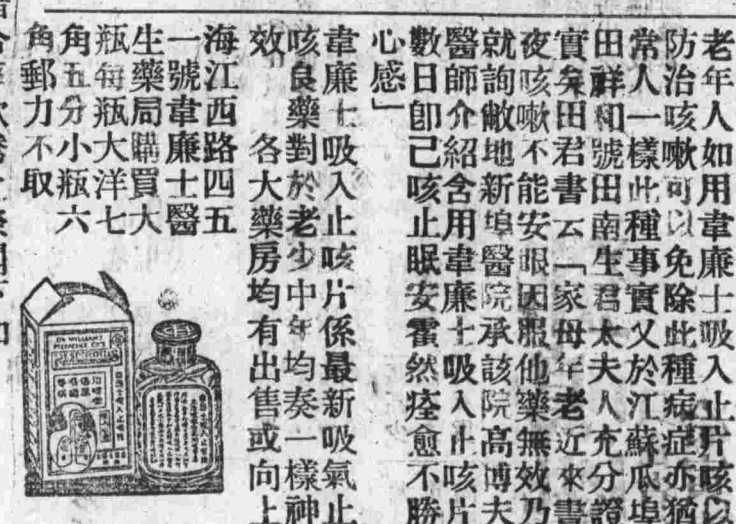 老年人如用韋廉士吸入止片咳以
防治咳嗽可以免除此種病症亦猶
常人一樣此種事實又於江蘇瓜埠
田祥和號田南生君太夫人充分證
實矣田君書云「家母年老近來晝
夜咳嗽不能安眠因服他藥無效乃
就詢敝地新埠醫院承該院高博夫
醫師介紹含用韋廉士吸入止咳片
數日卽己咳止眠安霍然痊愈不勝
心感」
韋廉士吸入止咳片係最新吸氣止
咳良藥對於老少中年均奏一樣神
效　各大藥房均有出售或向上
海江西路四五
一號韋廉士醫
生藥局購買大
瓶每瓶大洋七
角五分小瓶六
角郵力不取
DR WILLIAMS
MEDICINE CO'S